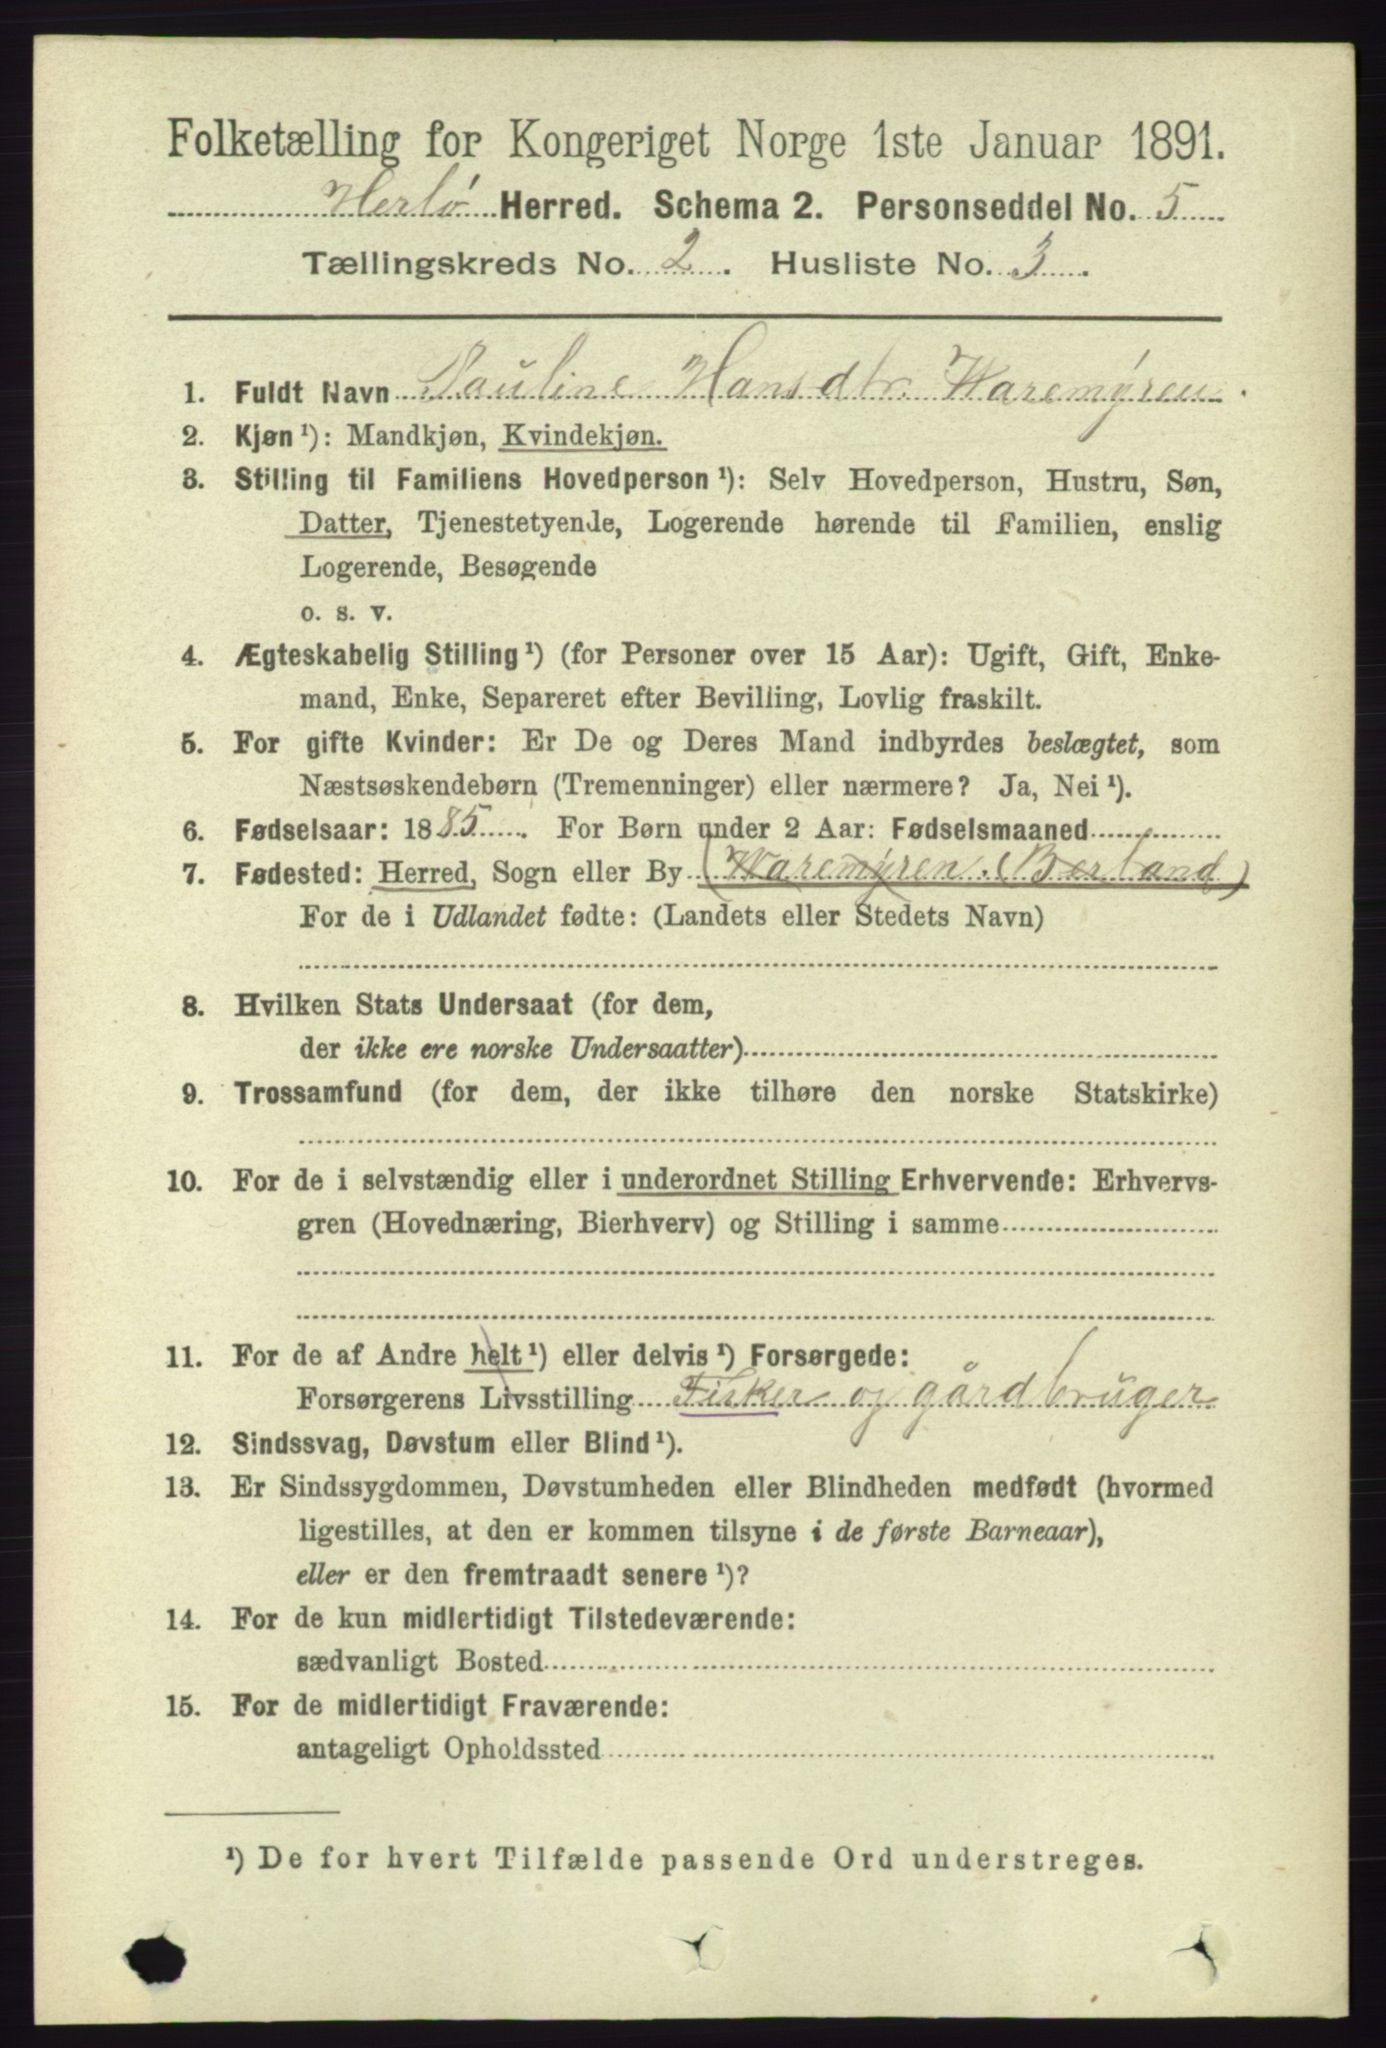 Folketælling for Kongeriget Norge 1ste Januar 1891.
Herlö Herred. Schema 2. Personseddel No. 5
Tællingskreds No. 2. Husliste No. 3.
1. Fuldt Navn Pauline Hansdtr. Waremÿren.
2. Kjøn ¹): Mandkjøn, Kvindekjøn.
3. Stilling til Familiens Hovedperson ¹): Selv Hovedperson, Hustru, Søn,
Datter, Tjenestetyende, Logerende hørende til Familien, enslig
Logerende, Besøgende
o. s. v.
4. Ægteskabelig Stilling ¹) (for Personer over 15 Aar): Ugift, Gift, Enke-
mand, Enke, Separeret efter Bevilling, Lovlig fraskilt.
5. For gifte Kvinder: Er De og Deres Mand indbyrdes beslægtet, som
Næstsøskendebørn (Tremenninger) eller nærmere? Ja, Nei ¹).
6. Fødselsaar: 1885. For Børn under 2 Aar: Fødselsmaaned
7. Fødested: Herred, Sogn eller By (Waremÿren. (Berland)
For de i Udlandet fødte: (Landets eller Stedets Navn)
8. Hvilken Stats Undersaat (for dem,
der ikke ere norske Undersaatter)
9. Trossamfund (for dem, der ikke tilhøre den norske Statskirke)
10. For de i selvstændig eller i underordnet Stilling Erhvervende: Erhvervs-
gren (Hovednæring, Bierhverv) og Stilling i samme
11. For de af Andre helt ¹) eller delvis ¹) Forsørgede:
Forsørgerens Livsstilling Fisker og gårdbrüger
12. Sindssvag, Døvstum eller Blind ¹).
13. Er Sindssygdommen, Døvstumheden eller Blindheden medfødt (hvormed
ligestilles, at den er kommen tilsyne i de første Barneaar),
eller er den fremtraadt senere ¹)?
14. For de kun midlertidigt Tilstedeværende:
sædvanligt Bosted
15. For de midlertidigt Fraværende:
antageligt Opholdssted
¹) De for hvert Tilfælde passende Ord understreges.